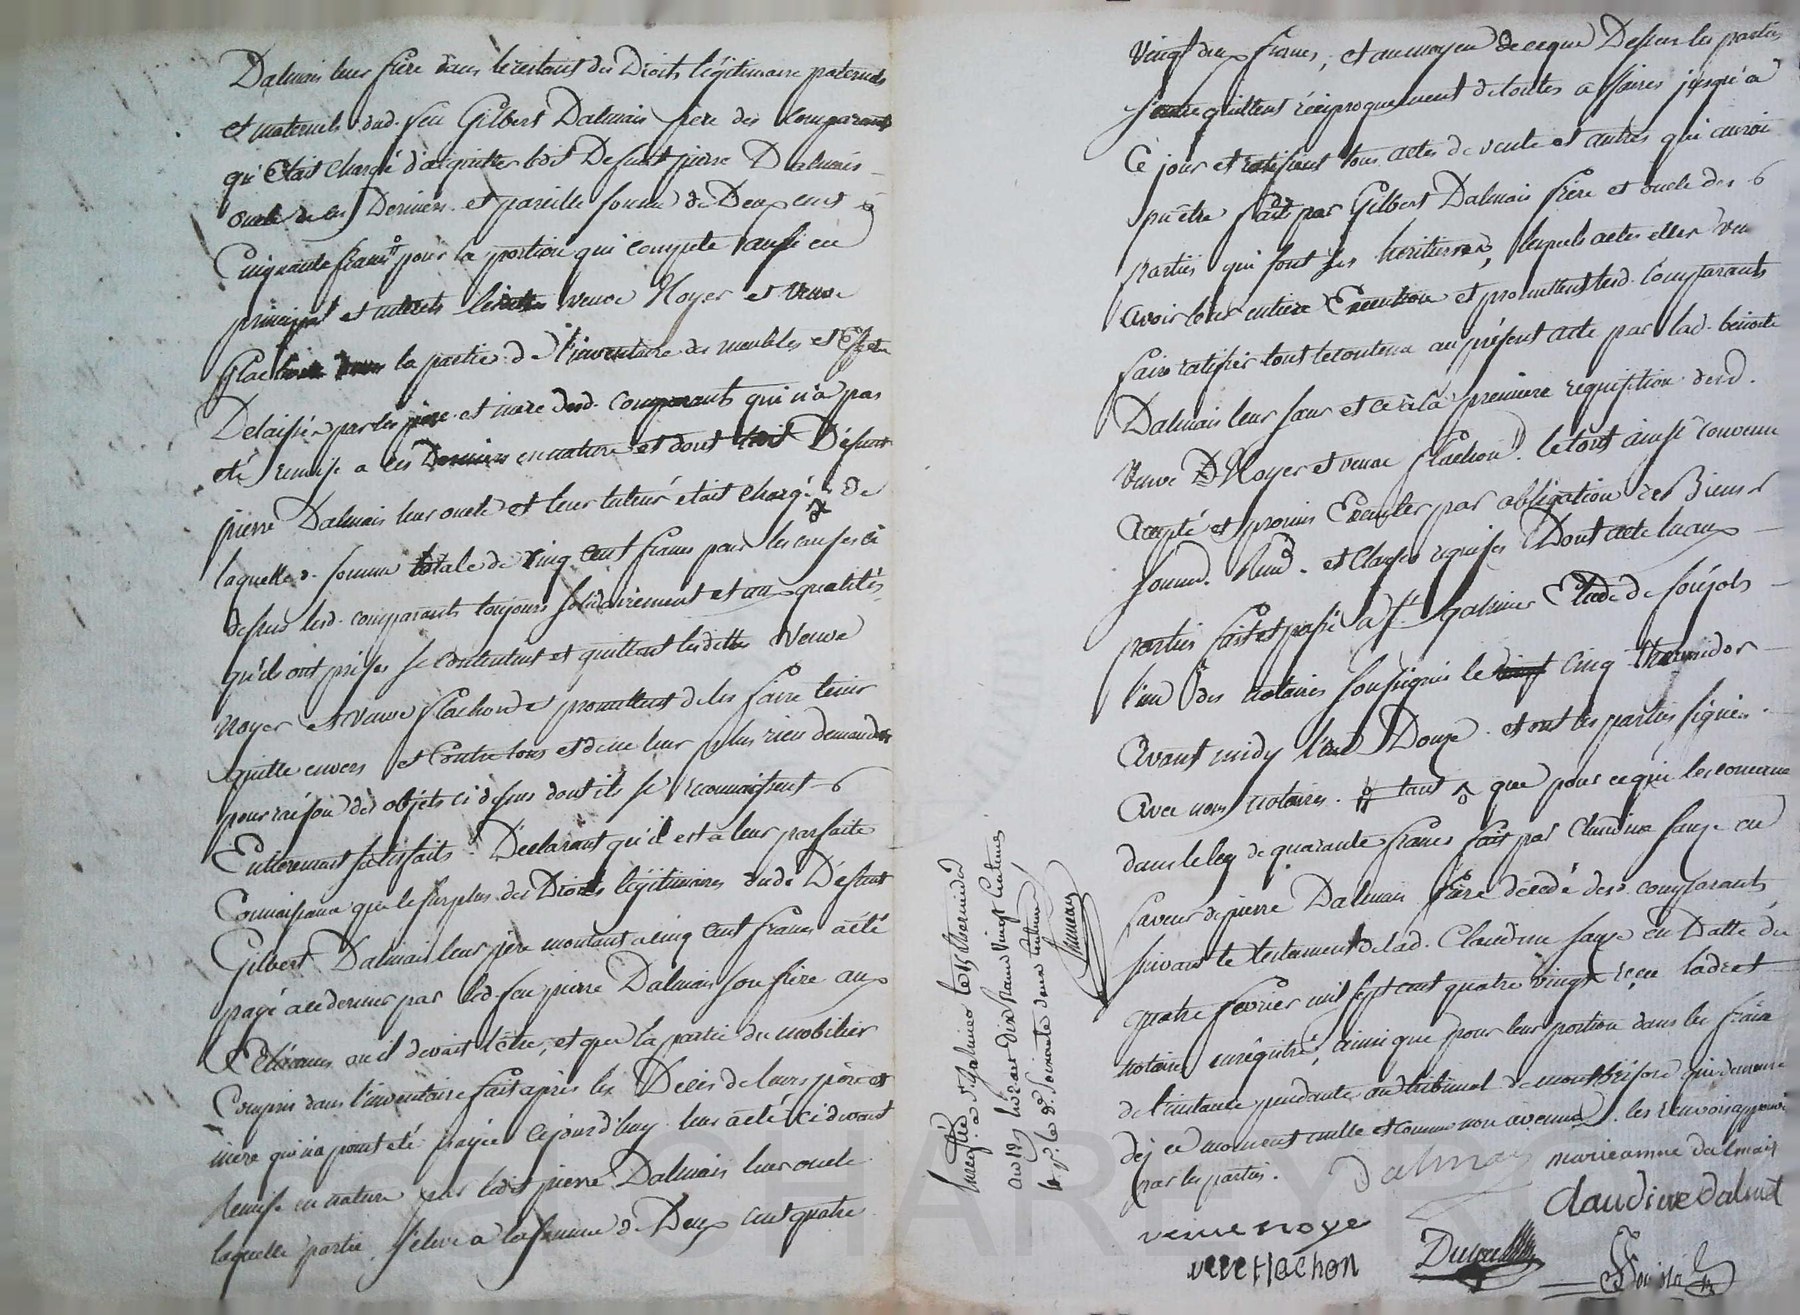 Dalmais leur frère dans le restant des Droits légitimaire paternels
et maternels dud. feu Gilbert Dalmais père des comparants
qu'était chargé d'acquitter ledit Defunt pierre Dalmais
oncle de ces Derniers et pareille somme de Deux cent
Cinquante francs pour la portion qui compete aussi en
principal et interets veuve Noyer et veuve
flachon la partie de l'inventaire des meubles et Effets
Delaissés par les père et mere desd. comparants qui n'a pas
été remise a ces Derniers en nature et dont ledit Défunt
pierre Dalmais leur oncle et leur tuteur etait chargé de
laquelle somme totale de cinq cent francs pour les causes ci
dessus lesd. comparants toujours solidairement et aux qualités
qu'ils ont prises se contentent et quittent lesdittes veuve
noyer et veuve flachon promettent de les faire tenir
quitte envers et contre tous et de ne leur plus rien demander
pour raison des objets ci dessus dont ils se reconnaissent
Entierement satisfaits. Déclarant qu'il est a leur parfaite
Connaissance que le surplus des Droits légitimaires dud. Défunt
Gilbert Dalmais leur père montant a cinq cent francs a été
payé a ce dernier par led. feu pierre Dalmais son frère aux
Echéances ou il devait l'être, et que la partie du mobilier
Compris dans l'inventaire fait après les Décès de leurs père et
mère qui n'a point été payée cejourd'huy leur a été ci devant
Remise en nature par ledit pierre Dalmais leur oncle
laquelle partie s'élève a la somme de Deux cent quatre
vingt deux francs, et au moyen de ce que Dessus les parties
s'entrequittent réciproquement de toutes affaires jusqu'a
Ce jour et ratifient tous actes de vente et autres qui auroi
pu être faits par Gilbert Dalmais frère et oncle des
parties qui sont ses heritieres, lesquels actes elles
avoir leur entiere Execution et promettent lesd. comparants
faire ratifier tout le contenu au présent acte par lad. benoite
Dalmais leur sœur et ce à la première requisition desd.
veuve Noyer et veuve flachon. le tout ainsi convenu
accepté et promis Executer par obligation de Biens
soumis. Ren. et clauses requises Dont acte lu aux
parties fait et passé a St. galmier Etude de
l'un des notaires soussignés le cinq thermidor
avant midy l'an Douze. et ont les parties signées
avec nous notaires. tant que pour ce qui les concerne
dans le leg de quarante francs fait par Claudine sauze en
faveur de pierre Dalmais frère decedé des. comparants
suivant le testament de lad. Claudine sauze en Datte du
quatre fevrier mil sept cent quatre vingt reçu ladret
notaire enregistré, ainsi que pour leur portion dans les frais
de l'instance pendante au tribunal de montbrison qui demeure
dez ce moment nulle et comme non avenue. les renvois approuvés
par les parties.
Dalmais
marieanne dalmais
veuve noye
claudine dalmet
veve flachon
Enregistré a St. Galmier le 15 thermidor
an 12 reçu dix francs vingt centimes